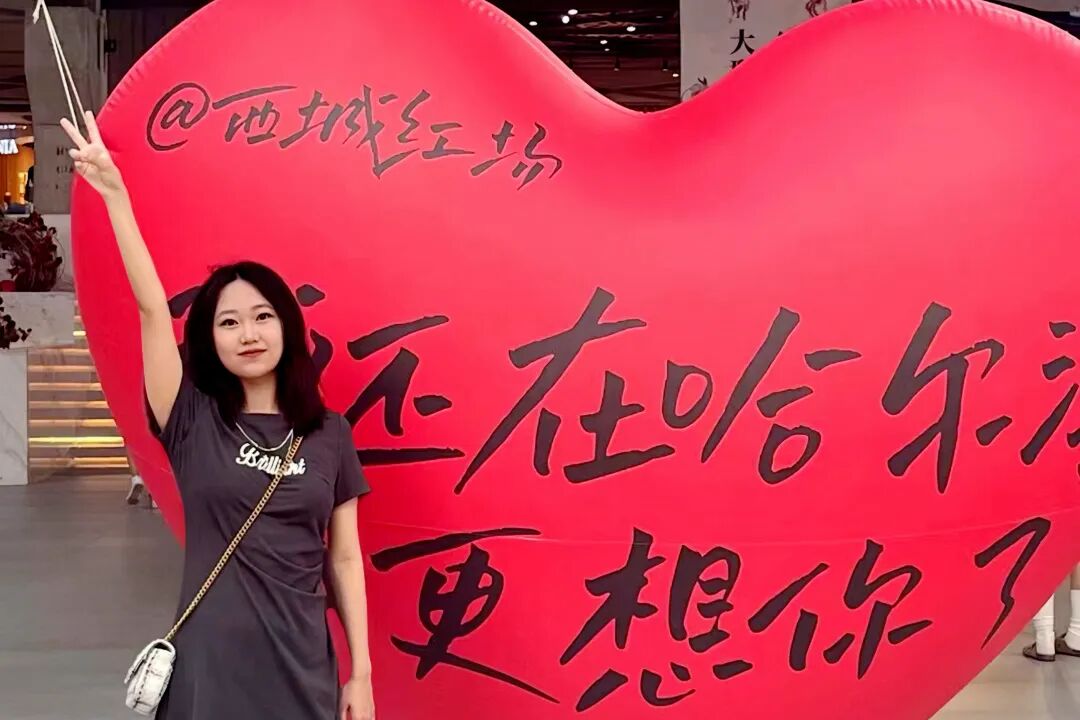 @西城红场
还在哈尔
更想你了
Brilliant
大